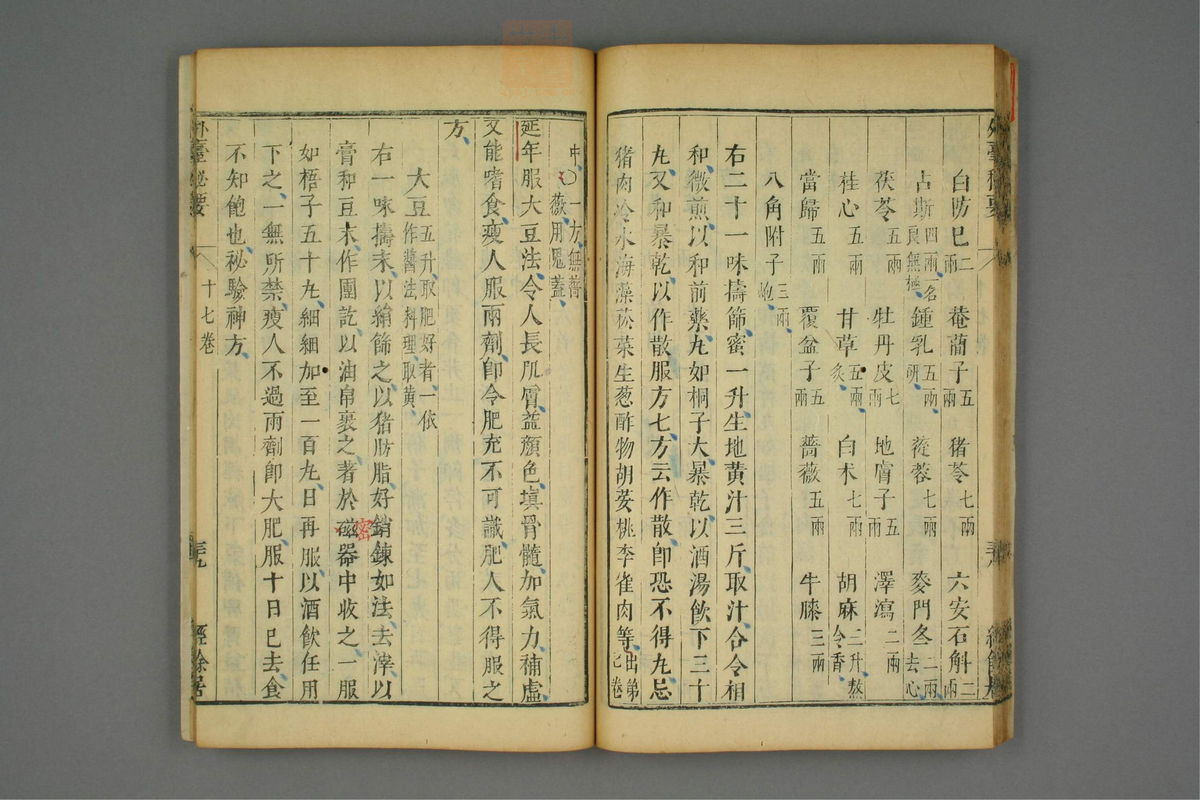 白防巳二兩 菴䕡子五兩 豬苓七兩 六安石斛二兩
占斯四兩名良無極 鍾乳五兩研 蓯蓉七兩 麥門冬二兩去心
茯苓五兩 牡丹皮七兩 地膚子五兩 澤瀉二兩
桂心五兩 甘草五兩炙 白朮七兩 胡麻二升熬令香
當歸五兩 覆盆子五兩 薔薇五兩 牛膝三兩
八角附子三兩炮
右二十一味擣篩蜜一升生地黃汁三斤取汁合令相
和微煎以和前藥丸如桐子大暴乾以酒湯飲下三十
丸又和暴乾以作散服方七方云作散卽恐不得丸忌
豬肉冷水海藻菘菜生葱酢物胡荽桃李雀肉等出第七卷
中○一方無薔薇用鬼蓋
延年服大豆法令人長肌膚益顏色填骨髓加氣力補虛
又能嗜食瘦人服兩劑卽令肥充不可識肥人不得服之
方
大豆五升取肥好者一依作醬法料理取黃
右一味擣末以絹篩之以猪肪脂好銷鍊如法去滓以
膏和豆末作團訖以油帛裹之著於磁器中收之一服
密
如梧子五十丸細細加至一百丸日再服以酒飲任用
下之一無所禁瘦人不過兩劑卽大肥服十日巳去食
不知飽也祕驗神方
外臺祕要 十七卷 三九 經餘居